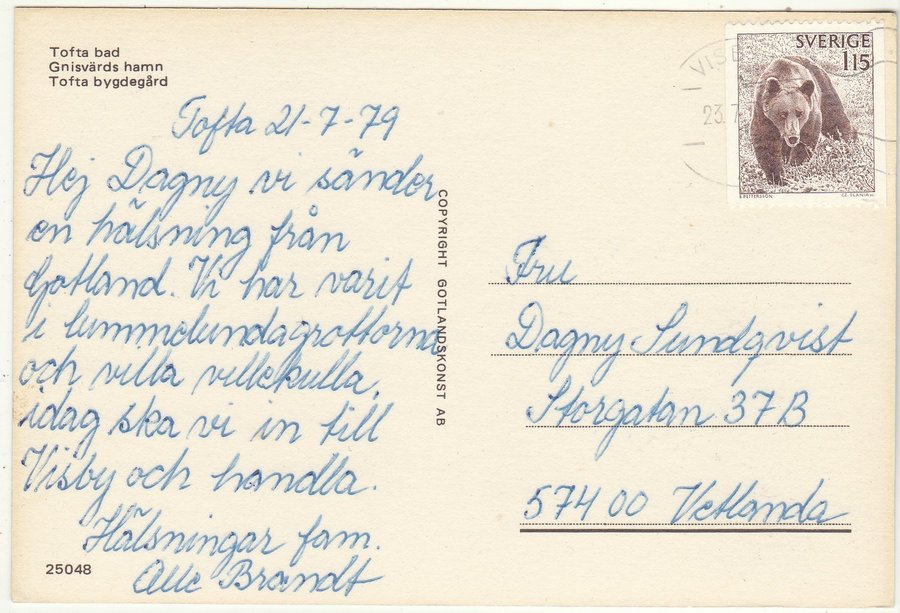 Tofta bad
Gnisvärds hamn
Tofta bygdegård
Tofta 21-7-79
Hej Dagny vi sänder
en hälsning från
Gotland. Vi har varit
i lummelundagrottorna
och villa villekulla.
idag ska vi in till
Visby och handla.
Hälsningar fam.
Olle Brandt
25048
COPYRIGHT GOTLANDSKONST AB
SVERIGE
115
23.7
Fru
Dagny Sundqvist
Storgatan 37B
574 00 Vetlanda